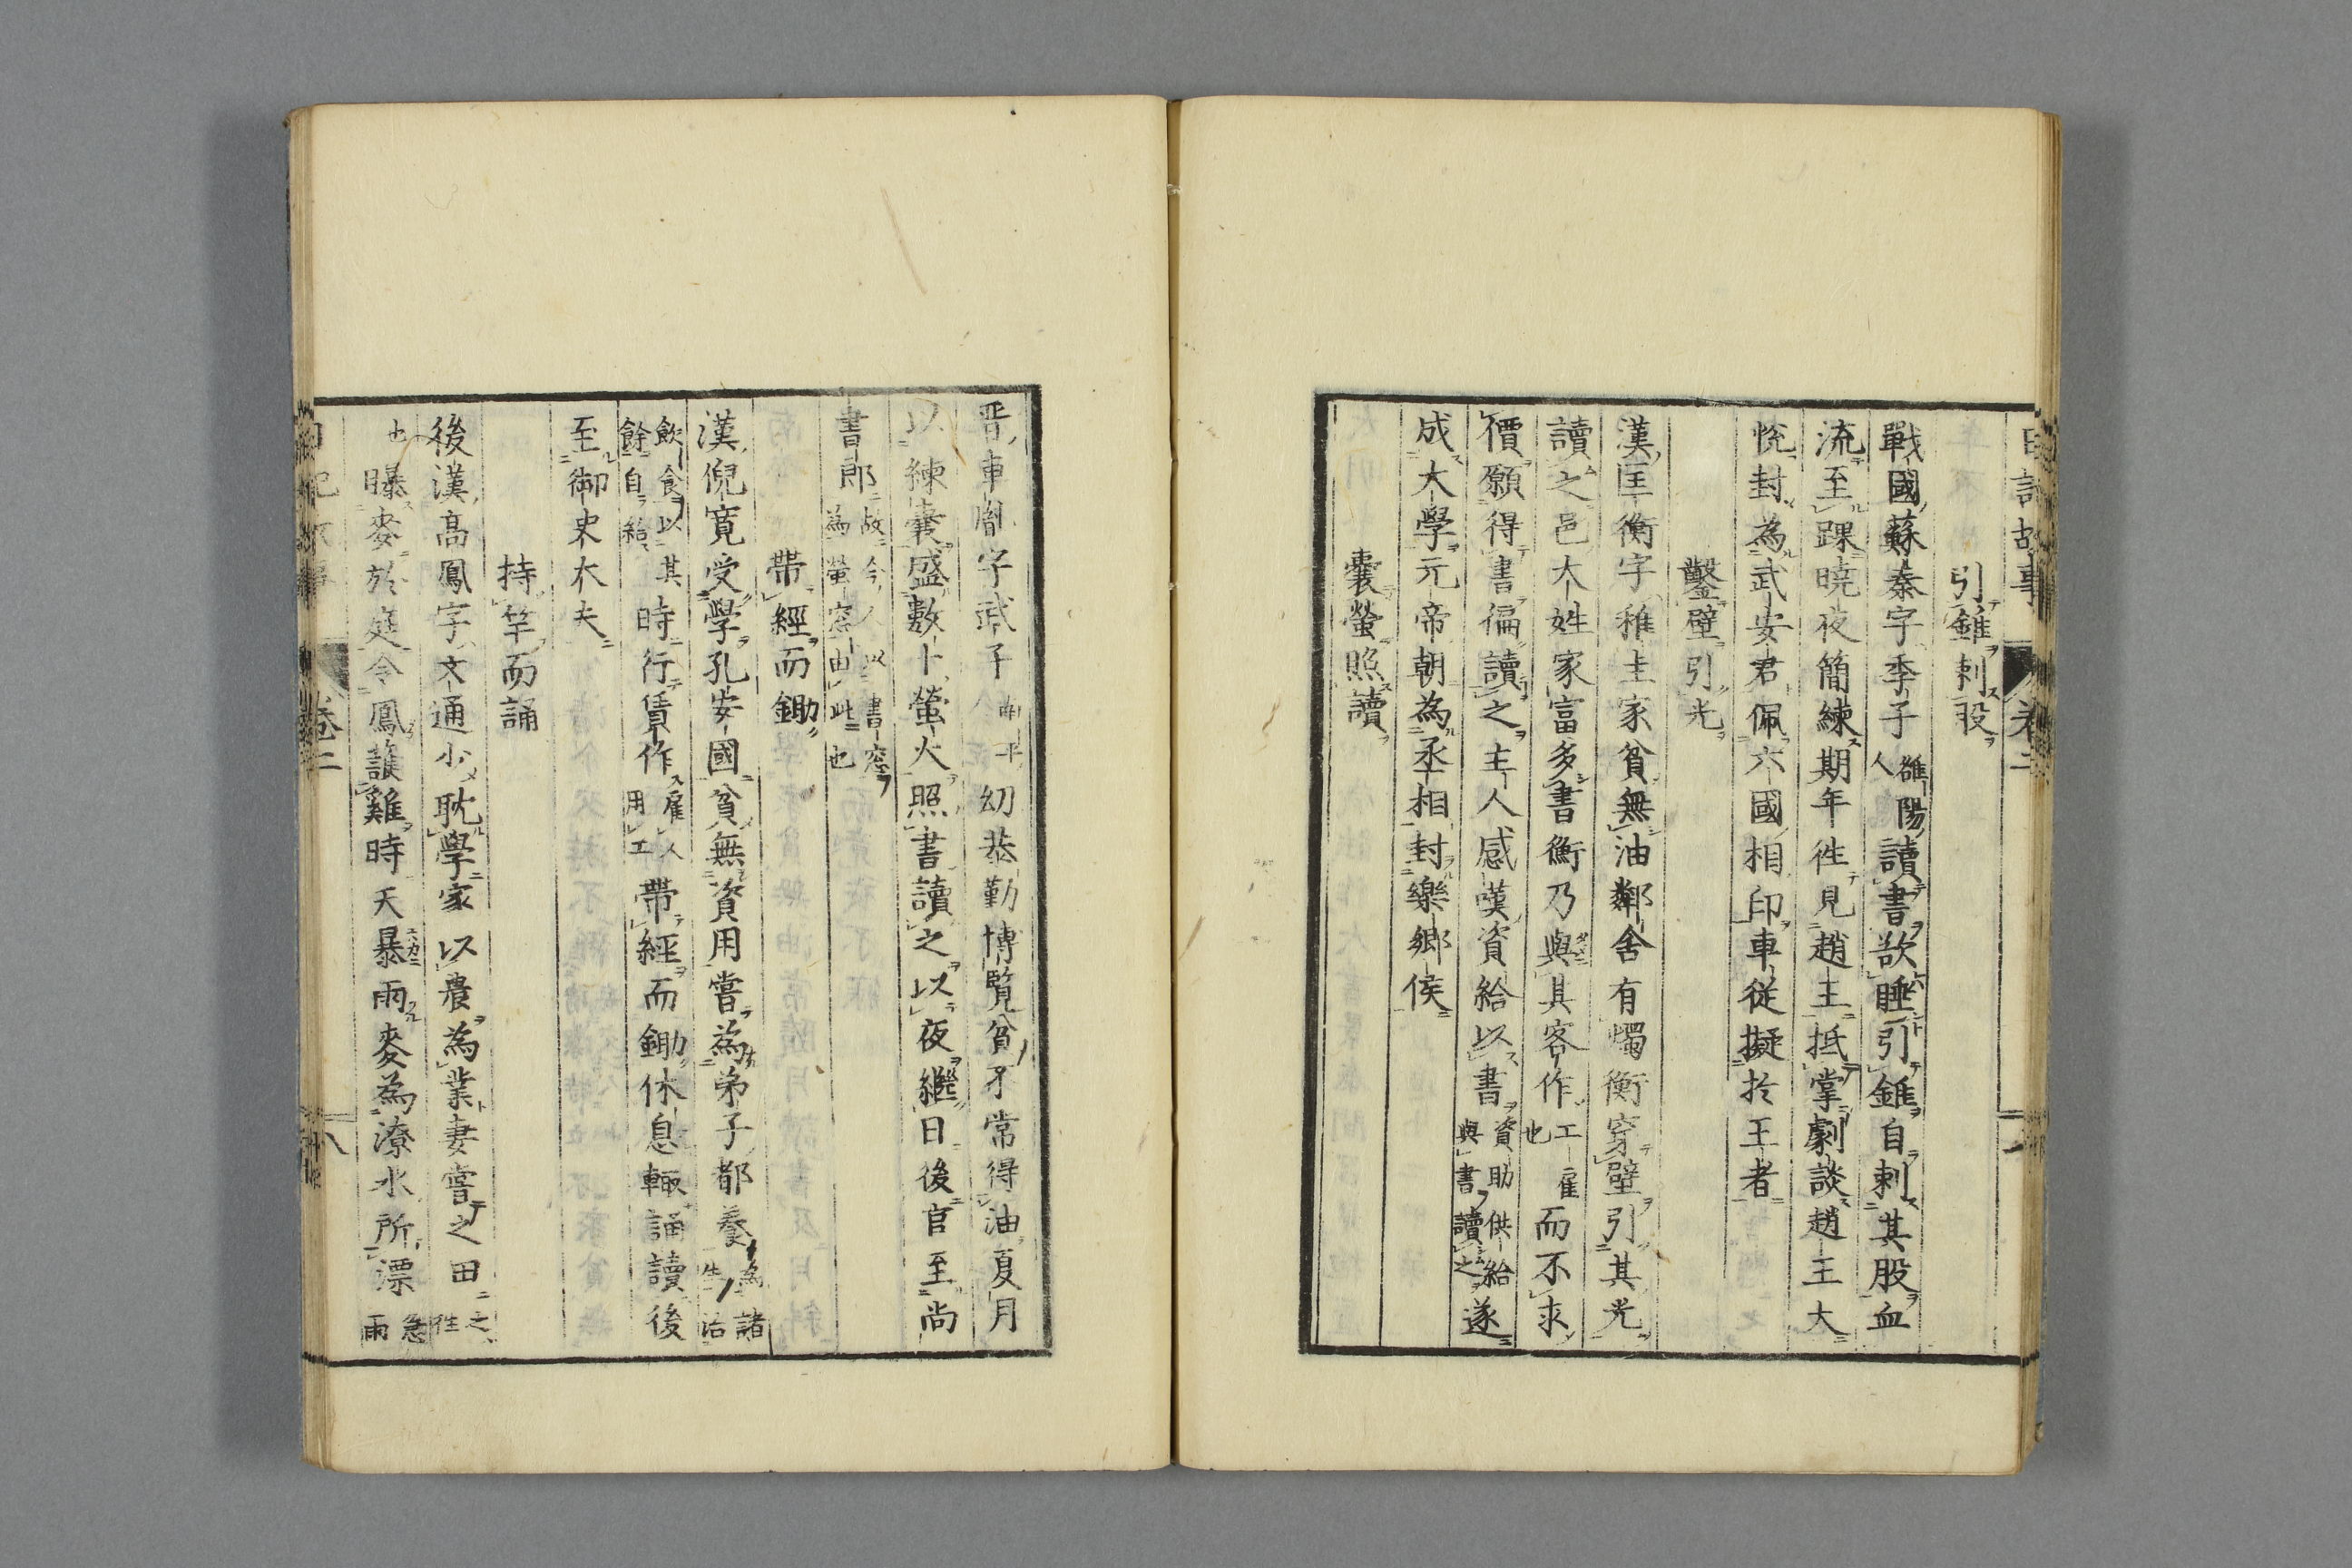 引錐刺股
戰國蘇秦字季子雒陽人讀書欲睡引錐自刺其股血
流至踝曉夜簡練期年徃見趙王抵掌劇談趙王大
悅封為武安君佩六國相印車從擬於王者
鑿壁引光
漢匡衡字稚圭家貧無油鄰舍有燭衡穿壁引其光
讀之邑大姓家富多書衡乃與其客作工雇也而不求
價願得書徧讀之主人感嘆資給以書資助供給與書讀之遂
成大學元帝朝為丞相封樂鄉侯
囊螢照讀
晋車胤字武子南平幼恭勤博覧貧不常得油夏月
以練囊盛數十螢火照書讀之以夜繼日後官至尚
書郎故今人以書窓為螢窓由此也
帶經而鋤
漢倪寛受學孔安國貧無資用嘗為弟子都養為諸生治
飲食以其餘自給時行賃作雇人用工帶經而鋤休息輙誦讀後
至御史大夫
持竿而誦
後漢高鳳字文通少耽學家以農為業妻嘗之田之徃
也曝麥於庭令鳳護雞時天暴雨麥為潦水所漂急雨
卷二
八